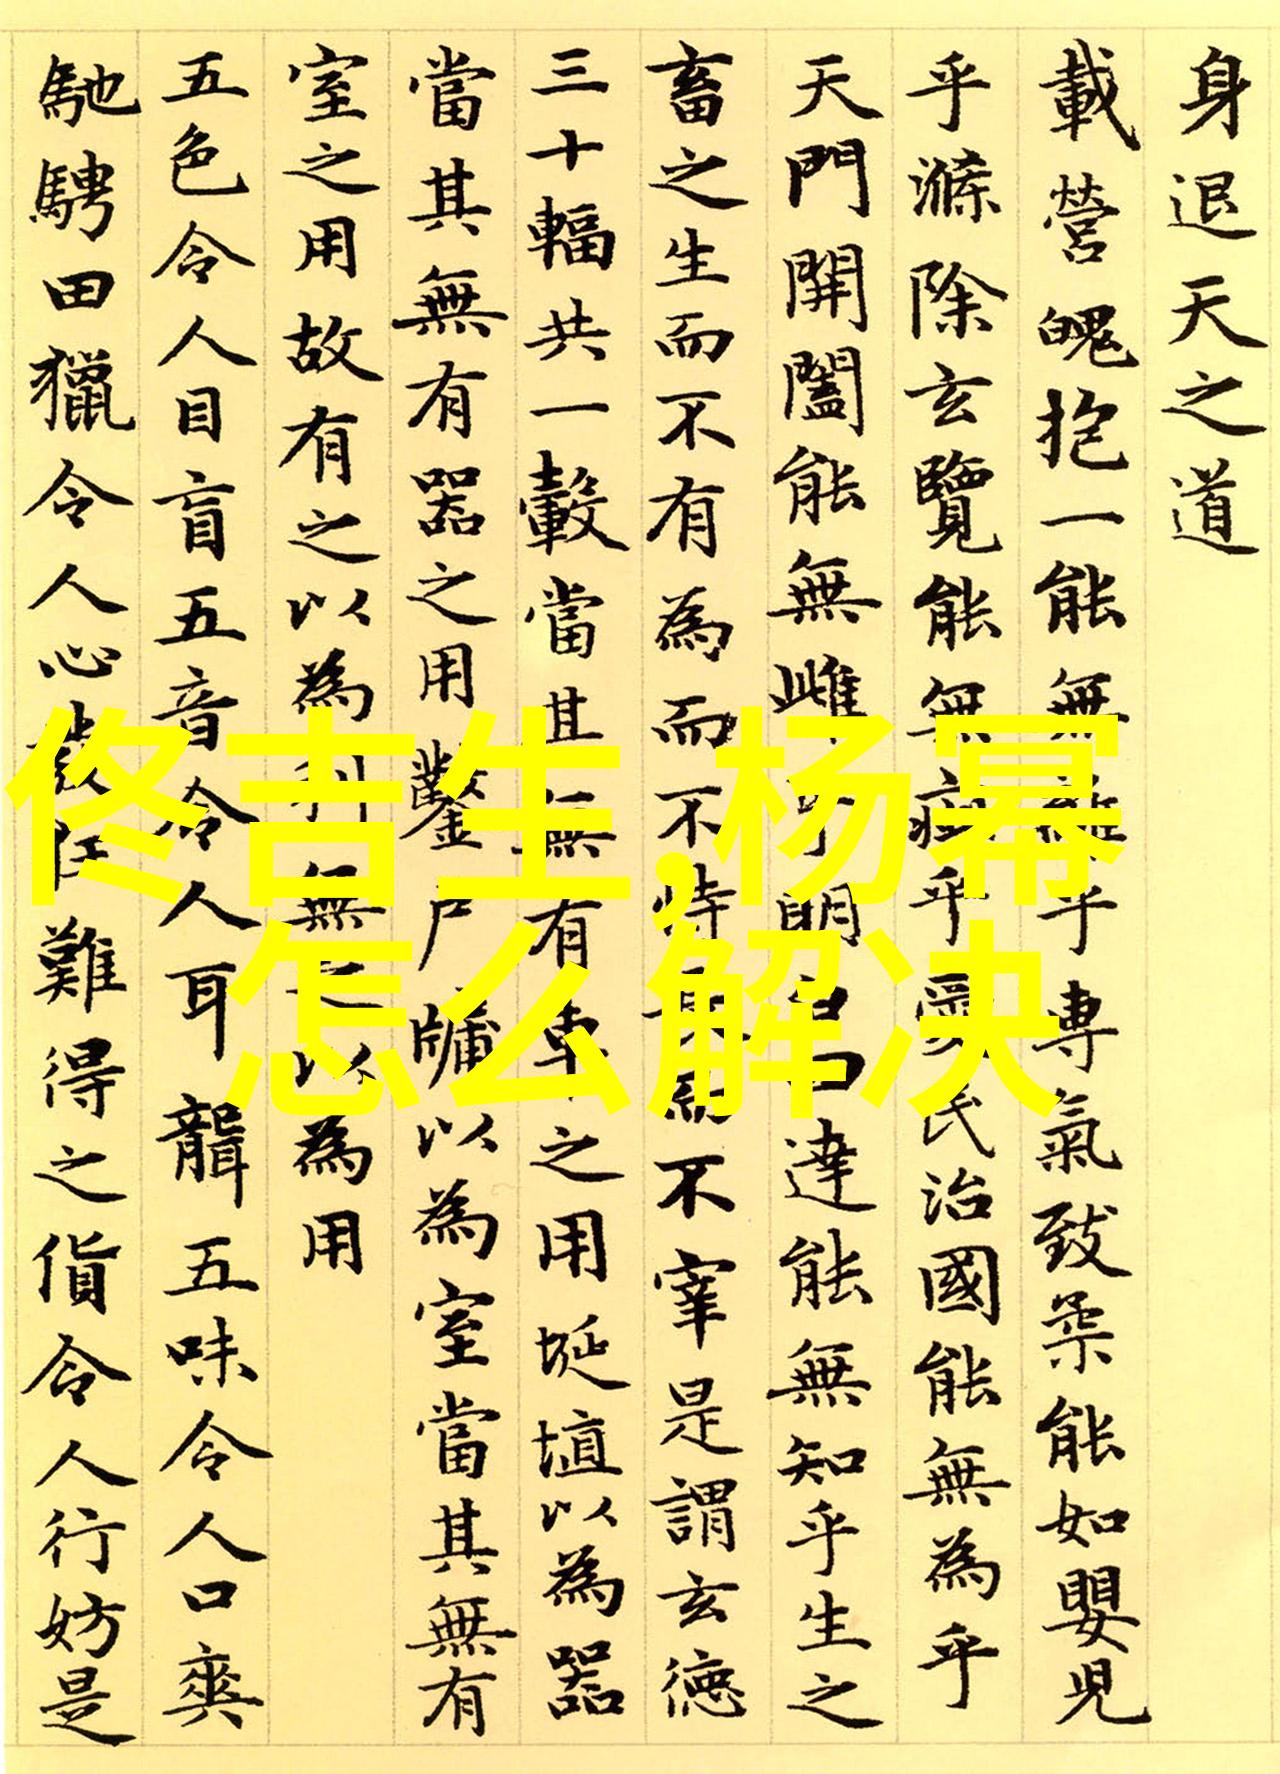 身退天之道
載營魄抱一能無離乎專氣致柔能如嬰兒
乎滌除玄覽能無疵乎愛民治國能無為乎
天門開闔能無雌乎明白四達能無知乎生之
畜之生而不有為而不恃長而不宰是謂玄德
三十輻共一轂當其無有車之用埏埴以為器
當其無有器之用鑿戶牖以為室當其無有
室之用故有之以為利無之以為用
五色令人目盲五音令人耳聾五味令人口爽
馳騁田獵令人心發狂難得之貨令人行妨是
佟吉生,杨幂
怎么解决